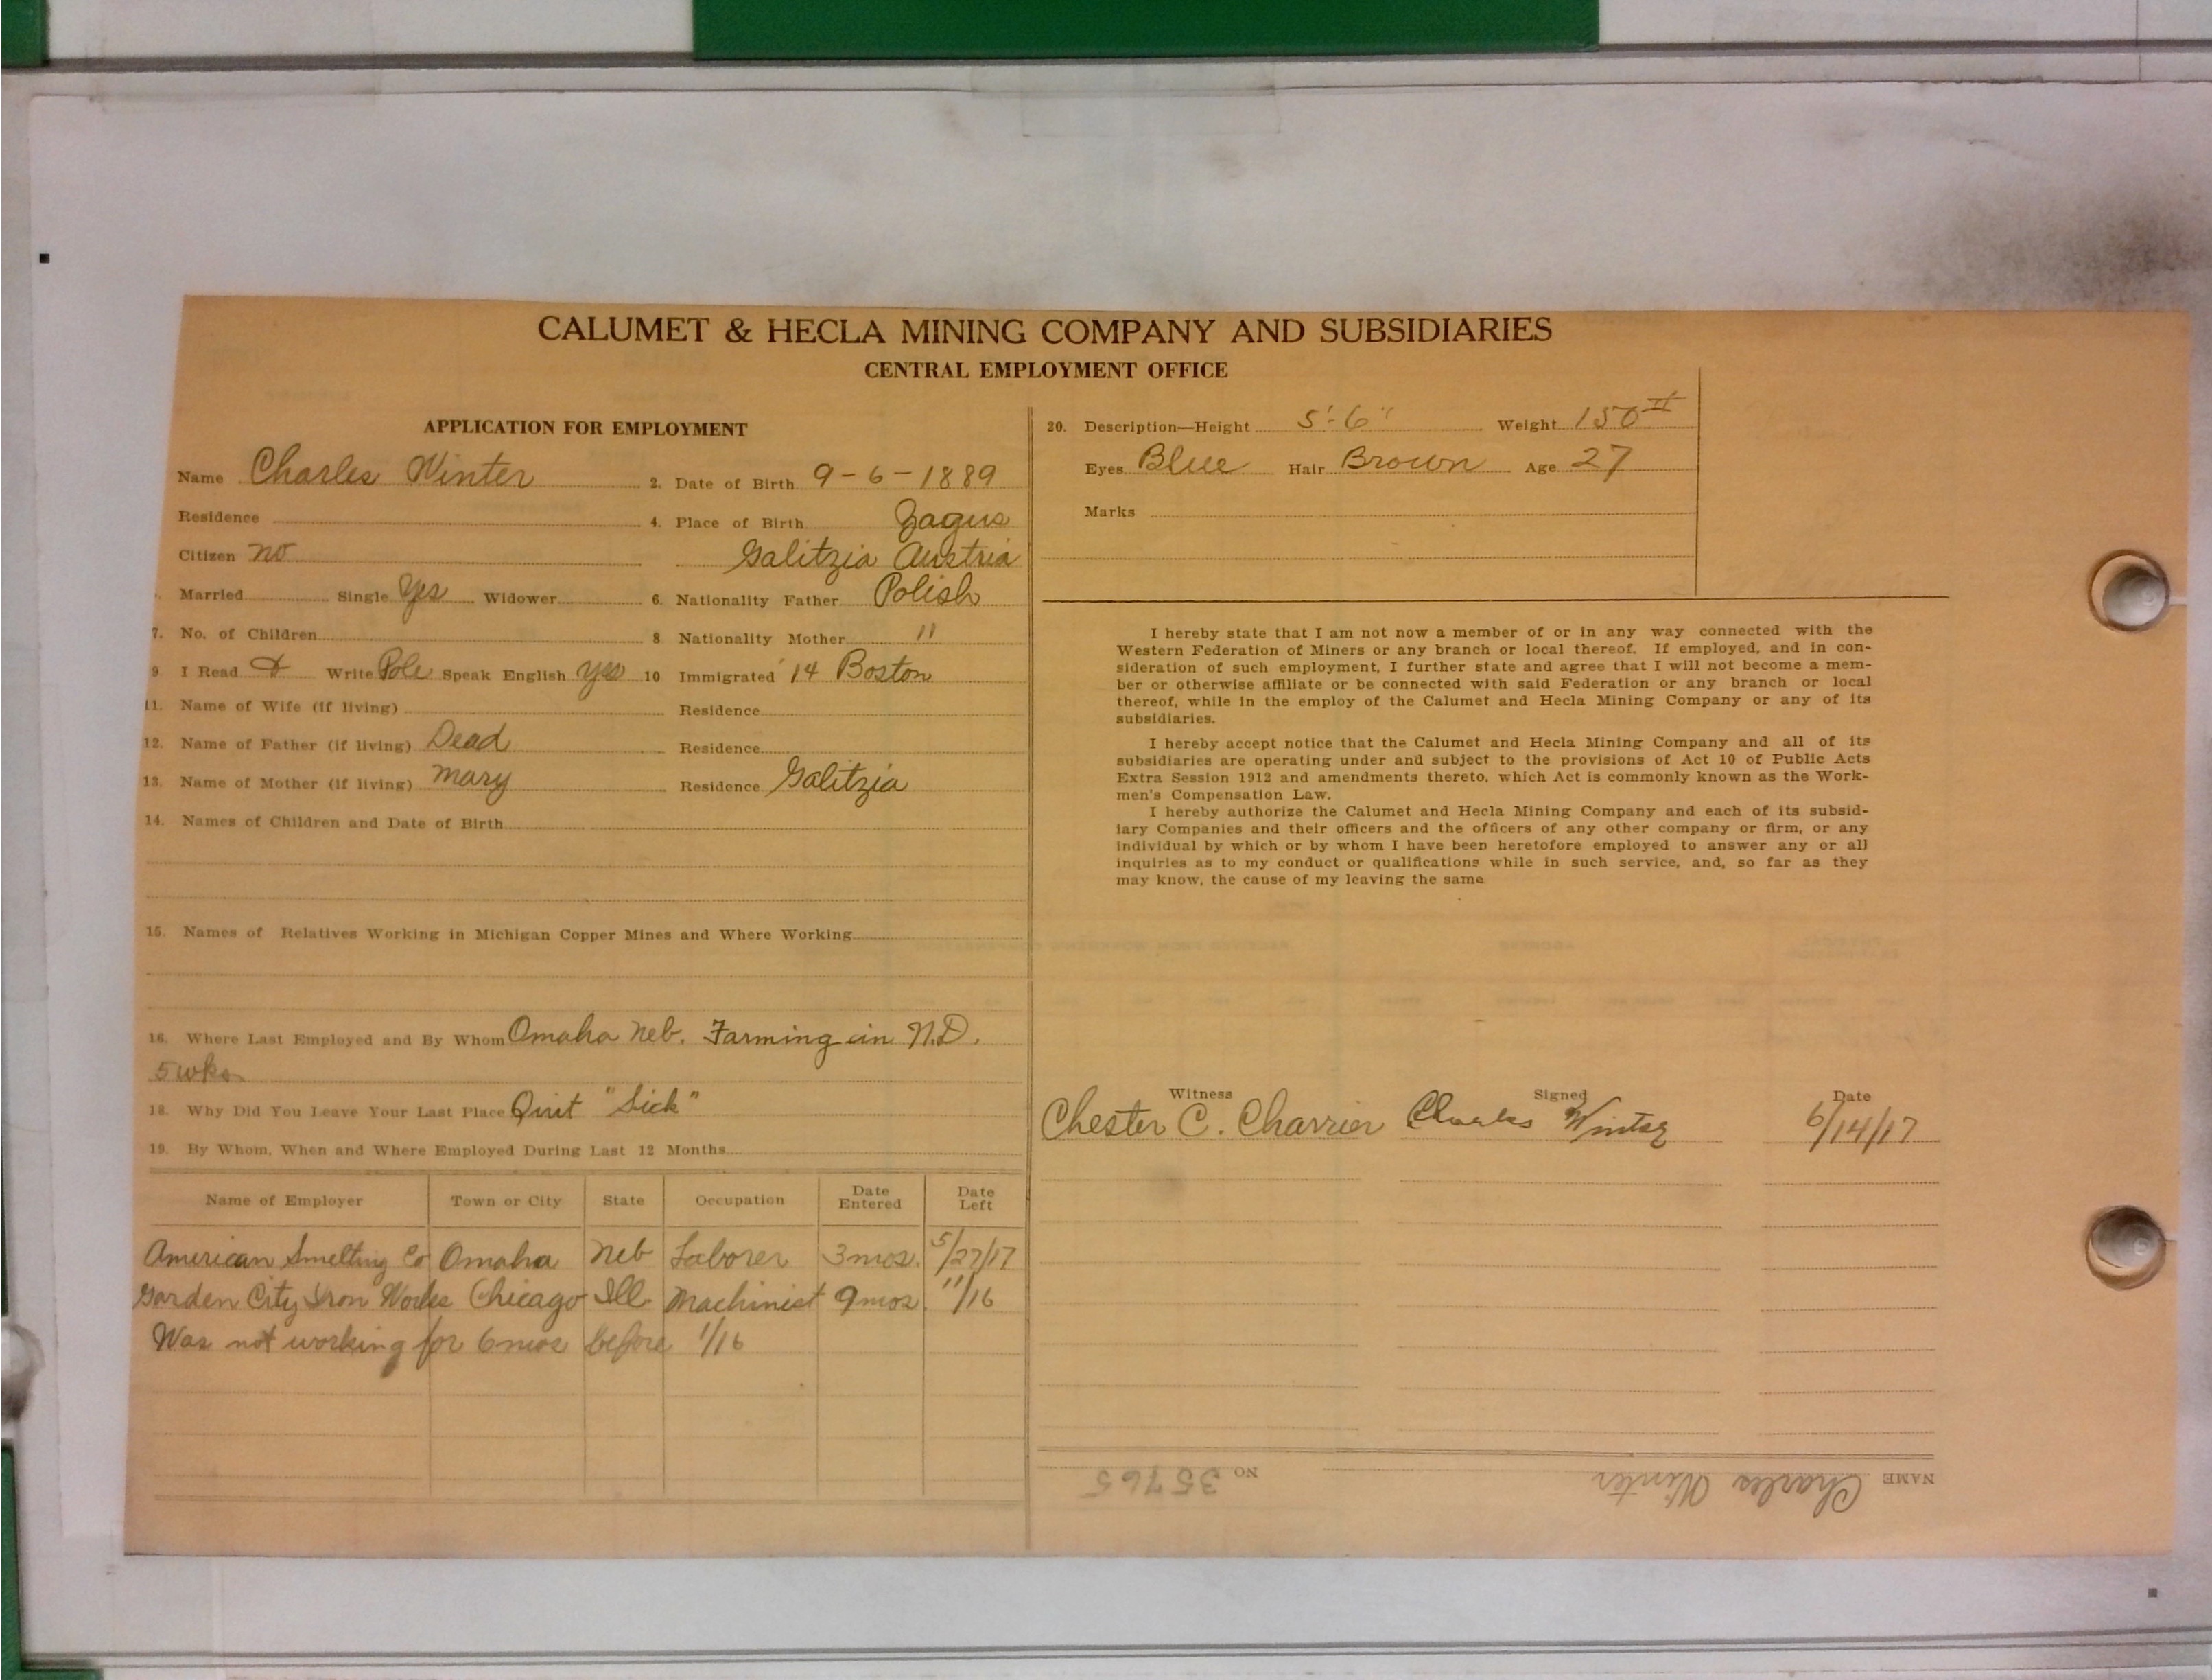 CALUMET & HECLA MINING COMPANY AND SUBSIDIARIES
CENTRAL EMPLOYMENT OFFICE
APPLICATION FOR EMPLOYMENT
Name Charles Winter 2. Date of Birth 9-6-1889
Residence 4. Place of Birth Zagus
Citizen no Galitzia Austria
Married Single Yes Widower 6. Nationality Father Polish
7. No. of Children 8 Nationality Mother "
9 I Read & Write Pole Speak English yes 10 Immigrated '14 Boston
11. Name of Wife (if living) Residence
12. Name of Father (if living) Dead Residence
13. Name of Mother (if living) Mary Residence Galitzia
14. Names of Children and Date of Birth
15. Names of Relatives Working in Michigan Copper Mines and Where Working
16. Where Last Employed and By Whom Omaha Neb. Farming in N.D.
5 wks
18. Why Did You Leave Your Last Place Quit "Sick"
19. By Whom, When and Where Employed During Last 12 Months
Name of Employer Town or City State Occupation Date Entered Date Left
American Smelting Co Omaha Neb Laborer 3 mos. 5/27/17
Garden City Iron Works Chicago Ill Machinist 9 mos. 11/16
Was not working for 6 mos before 1/16
20. Description—Height 5'-6" Weight 150#
Eyes Blue Hair Brown Age 27
Marks
I hereby state that I am not now a member of or in any way connected with the
Western Federation of Miners or any branch or local thereof. If employed, and in con-
sideration of such employment, I further state and agree that I will not become a mem-
ber or otherwise affiliate or be connected with said Federation or any branch or local
thereof, while in the employ of the Calumet and Hecla Mining Company or any of its
subsidiaries.
I hereby accept notice that the Calumet and Hecla Mining Company and all of its
subsidiaries are operating under and subject to the provisions of Act 10 of Public Acts
Extra Session 1912 and amendments thereto, which Act is commonly known as the Work-
men's Compensation Law.
I hereby authorize the Calumet and Hecla Mining Company and each of its subsid-
iary Companies and their officers and the officers of any other company or firm, or any
individual by which or by whom I have been heretofore employed to answer any or all
inquiries as to my conduct or qualifications while in such service, and, so far as they
may know, the cause of my leaving the same
Witness Signed Date
Chester C. Charrier Charles Winter 6/14/17
NAME Charles Winter NO 35765